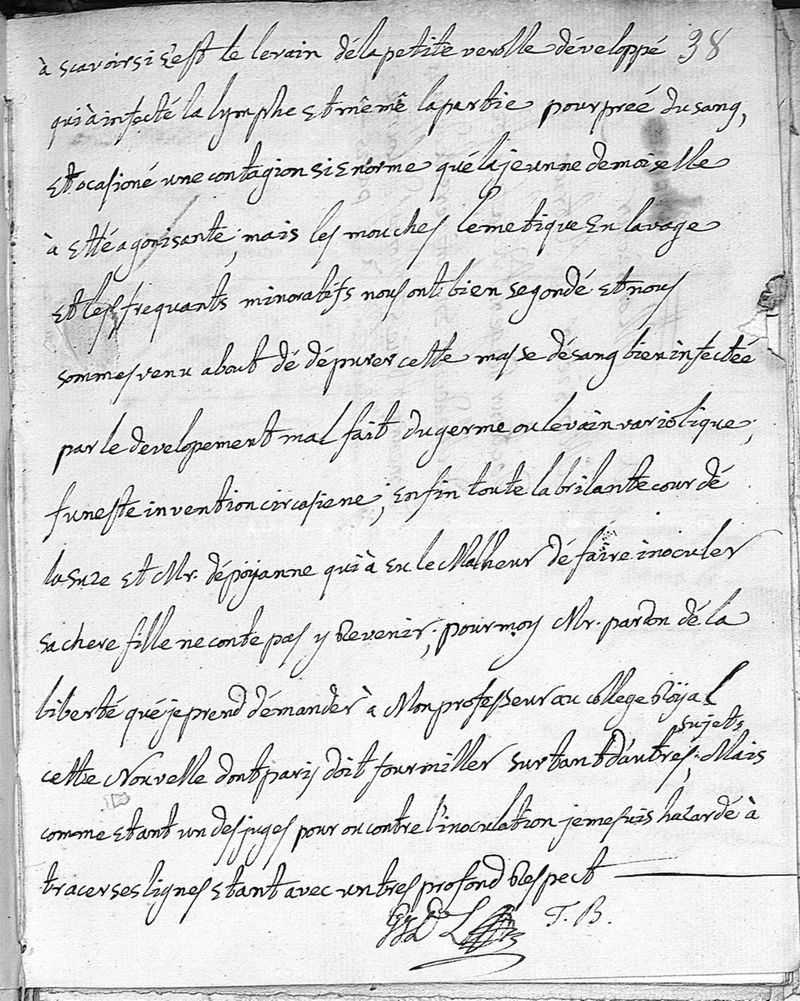 à scavoir si s'est le levain dé la petite verolle développé 38
qui à infecté la lymphe Et même la partie pourpreé du sang,
Et ocasioné une contagion si Enorme qué la jeunne demoiselle
à Etté agonisante, mais les mouches lemetique En lavage
Et les frequants minoratifs nous ont bien segondé Et nous
sommes venu about dé dépurer cette masse dé sang bien infectée
par le developement mal fait du germe ou levain variolique;
funeste invention circasiene; Enfin toute la brilante cour dé
la suze Et Mr. dépoÿanne qui à Eu le Malheur dé faire inoculer
sa chere fille ne conte pas y Revenir; pour moy Mr. pardon dé la
liberté qué je prend démander à Mon professeur au college Roÿal
cette Nouvelle dont paris doit fourmiller sur tant d'autres sujets; Mais
comme Etant un des juges pour ou contre l'inoculation je me suis hazardé à
tracer ses lignes Etant avec un tres profond Respect
T. B.